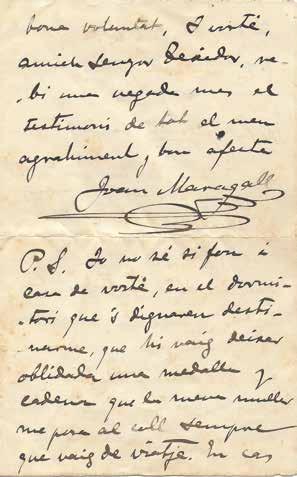 bona voluntat. I vosté,
amich senyor Desideri, re-
bi una vegada mes el
testimoni de tot el meu
agrahiment y bon afecte
Joan Maragall
P. S. Jo no sé si fou á
casa de vosté, en el dormi-
tori que 's dignaren desti-
narme, que hi vaig deixar
oblidada una medalla y
cadena que la meva muller
me posa al coll sempre
que vaig de viatje. En cas